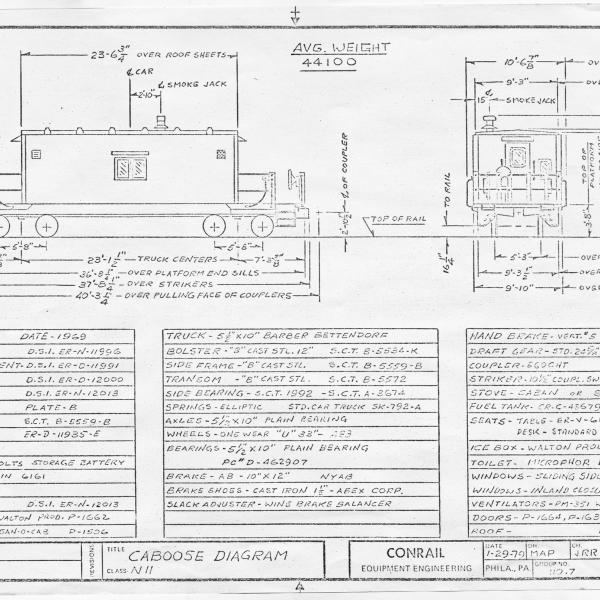 23'-6 3/4" OVER ROOF SHEETS
℄ CAR
℄ SMOKE JACK
2'-10"
AVG. WEIGHT
44100
10'-6 7/8"
9'-3"
15"
℄ SMOKEJACK
℄ OF COUPLER
2'-10 1/2"
TOP OF RAIL
TO RAIL
16 1/4"
TOP OF
PLATFORM
3'-8"
5'-8"
23'-1 1/2" TRUCK CENTERS
5'-6"
36'-8 1/4" OVER PLATFORM END SILLS
37'-8 1/4" OVER STRIKERS
40'-3 1/4" OVER PULLING FACE OF COUPLERS
5'-3"
9'-3 1/2"
9'-10"
OVER
DATE - 1969
D.S.I. ER-N-11996
D.S.I. ER-D-11991
D.S.I. ER-D-12000
D.S.I. ER-N-12013
PLATE - B
S.C.T. B-5559-B
ER-D-11935-E
OLTS STORAGE BATTERY
IN 6161
D.S.I. ER-N-12013
WALTON PROD. P-1662
P-1596
TRUCK - 5 1/2" X 10" BARBER BETTENDORF
BOLSTER - "B" CAST STL. 12" S.C.T. B-5834-K
SIDE FRAME - "B" CAST STL. S.C.T. B-5559-B
TRANSOM - "B" CAST STL. S.C.T. B-5572
SIDE BEARING - S.C.T. 1992 - S.C.T. A-3674
SPRINGS - ELLIPTIC STD. CAR TRUCK SK-792-A
AXLES - 5 1/2" X 10" PLAIN BEARING
WHEELS - ONE WEAR "U" 33"-
BEARINGS - 5 1/2" X 10" PLAIN BEARING
PC# D-462907
BRAKE - AB - 10" X 12" NYAB
BRAKE SHOES - CAST IRON 1 1/2" - ABEX CORP.
SLACK ADJUSTER - WINE BRAKE BALANCER
HAND BRAKE - VERT. # 5
DRAFT GEAR - STD. 24 5/8"
COUPLER - E60CHT
STRIKER - 10 1/2" COUPL. SW
STOVE - CABAN OR
FUEL TANK - CR-C-43679
SEATS - TABLE - ER-V-6
DESK - STANDARD
ICE BOX - WALTON PROD
TOILET - MICROPHOR
WINDOWS - SLIDING SID
WINDOWS - INLAND CLOSU
VENTILATORS - PM-351 W
DOORS - P-1664, P-163
ROOF -
REVISIONS
TITLE
CABOOSE DIAGRAM
CLASS - N11
CONRAIL
EQUIPMENT ENGINEERING
DATE
1-29-79
DR.
MAP
CH.
JRR
PHILA., PA
GROUP NO.
110.7